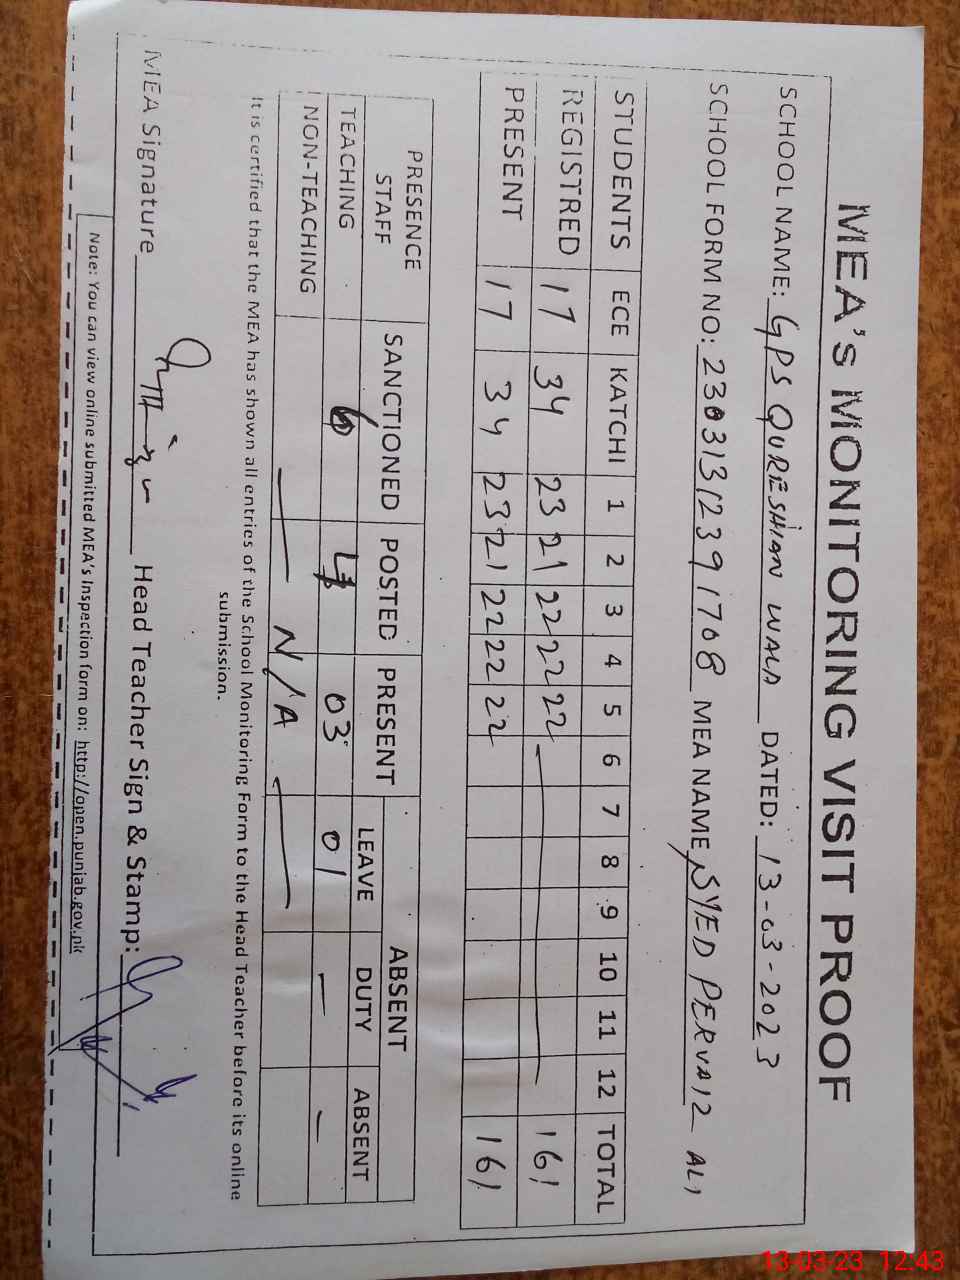 MEA's MONITORING VISIT PROOF
SCHOOL NAME: GPS QURESHIAN WALA DATED: 13-03-2023
SCHOOL FORM NO: 230313123917 08 MEA NAME SYED PERVAIZ ALI
STUDENTS ECE KATCHI 1 2 3 4 5 6 7 8 9 10 11 12 TOTAL
REGISTRED 17 34 23 21 22 22 22 161
PRESENT 17 34 23 21 22 22 22 161
PRESENCE STAFF SANCTIONED POSTED PRESENT ABSENT
LEAVE DUTY ABSENT
TEACHING 03 01 - -
NON-TEACHING — N/A —
It is certified that the MEA has shown all entries of the School Monitoring Form to the Head Teacher before its online
submission.
MEA Signature Head Teacher Sign & Stamp:
Note: You can view online submitted MEA's Inspection form on: http://open.punjab.gov.pk
13-03-23 12:43